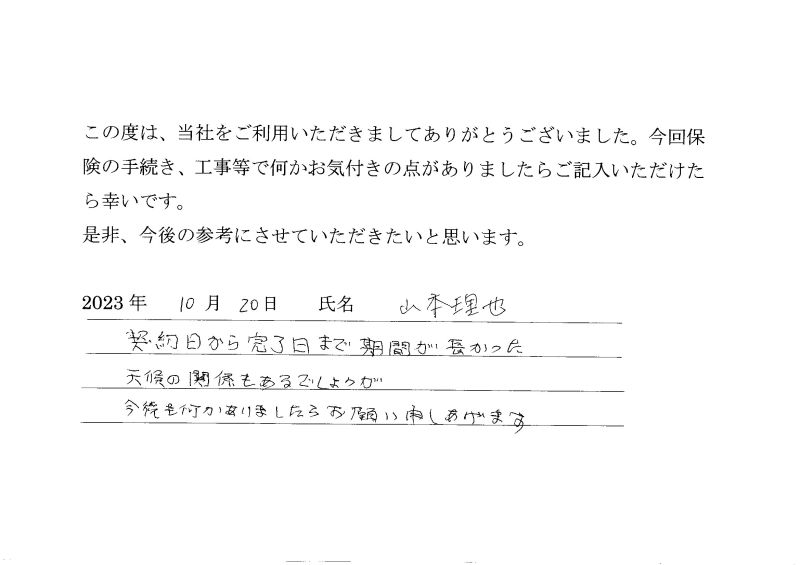 この度は、当社をご利用いただきましてありがとうございました。今回保
険の手続き、工事等で何かお気付きの点がありましたらご記入いただけた
ら幸いです。
是非、今後の参考にさせていただきたいと思います。
2023年 10月 20日 氏名 山本理也
契約日から完了日まで期間が長かった
天候の関係もあるでしょうが
今後も何かありましたらお願い申しあげます